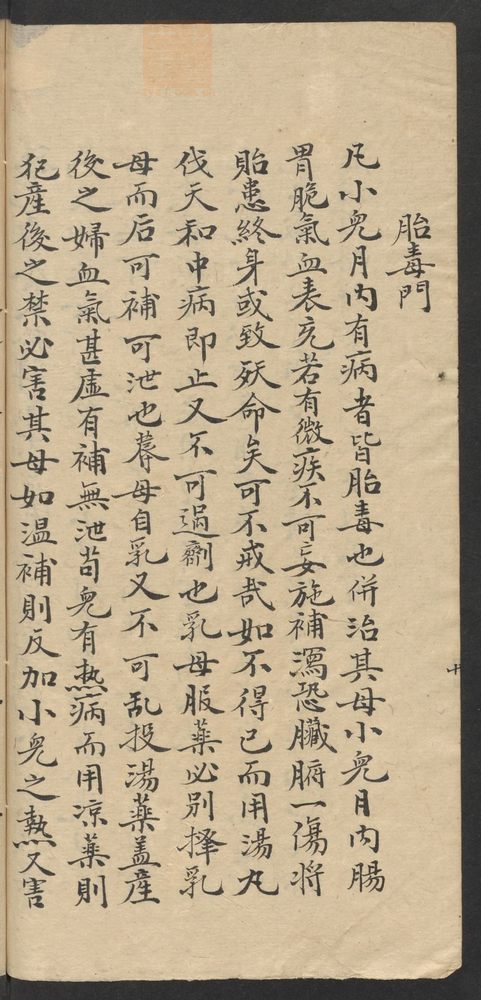 胎毒門
凡小兒月内有病者皆胎毒也併治其母小兒月内腸
胃脆氣血未充若有微疾不可妄施補瀉恐臟腑一傷将
貽患終身或致殀命矣可不戒哉如不得已而用湯丸
伐天和中病即止又不可過劑也乳母服藥必別擇乳
母而后可補可泄也蓐母自乳又不可乱投湯藥盖産
後之婦血氣甚虚有補無泄苟兒有热病而用凉藥則
犯産後之禁必害其母如温補則反加小兒之熱又害